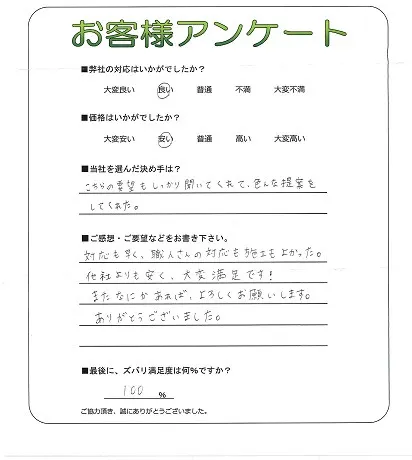 お客様アンケート
■弊社の対応はいかがでしたか？
大変良い 良い 普通 不満 大変不満
■価格はいかがでしたか？
大変安い 安い 普通 高い 大変高い
■当社を選んだ決め手は？
こちらの要望もしっかり聞いてくれて、色んな提案を
してくれた。
■ご感想・ご要望などをお書き下さい。
対応も早く、職人さんの対応も施工もよかった。
他社よりも安く、大変満足です！
またなにかあれば、よろしくお願いします。
ありがとうございました。
■最後に、ズバリ満足度は何%ですか？
100 %
ご協力頂き、誠にありがとうございました。